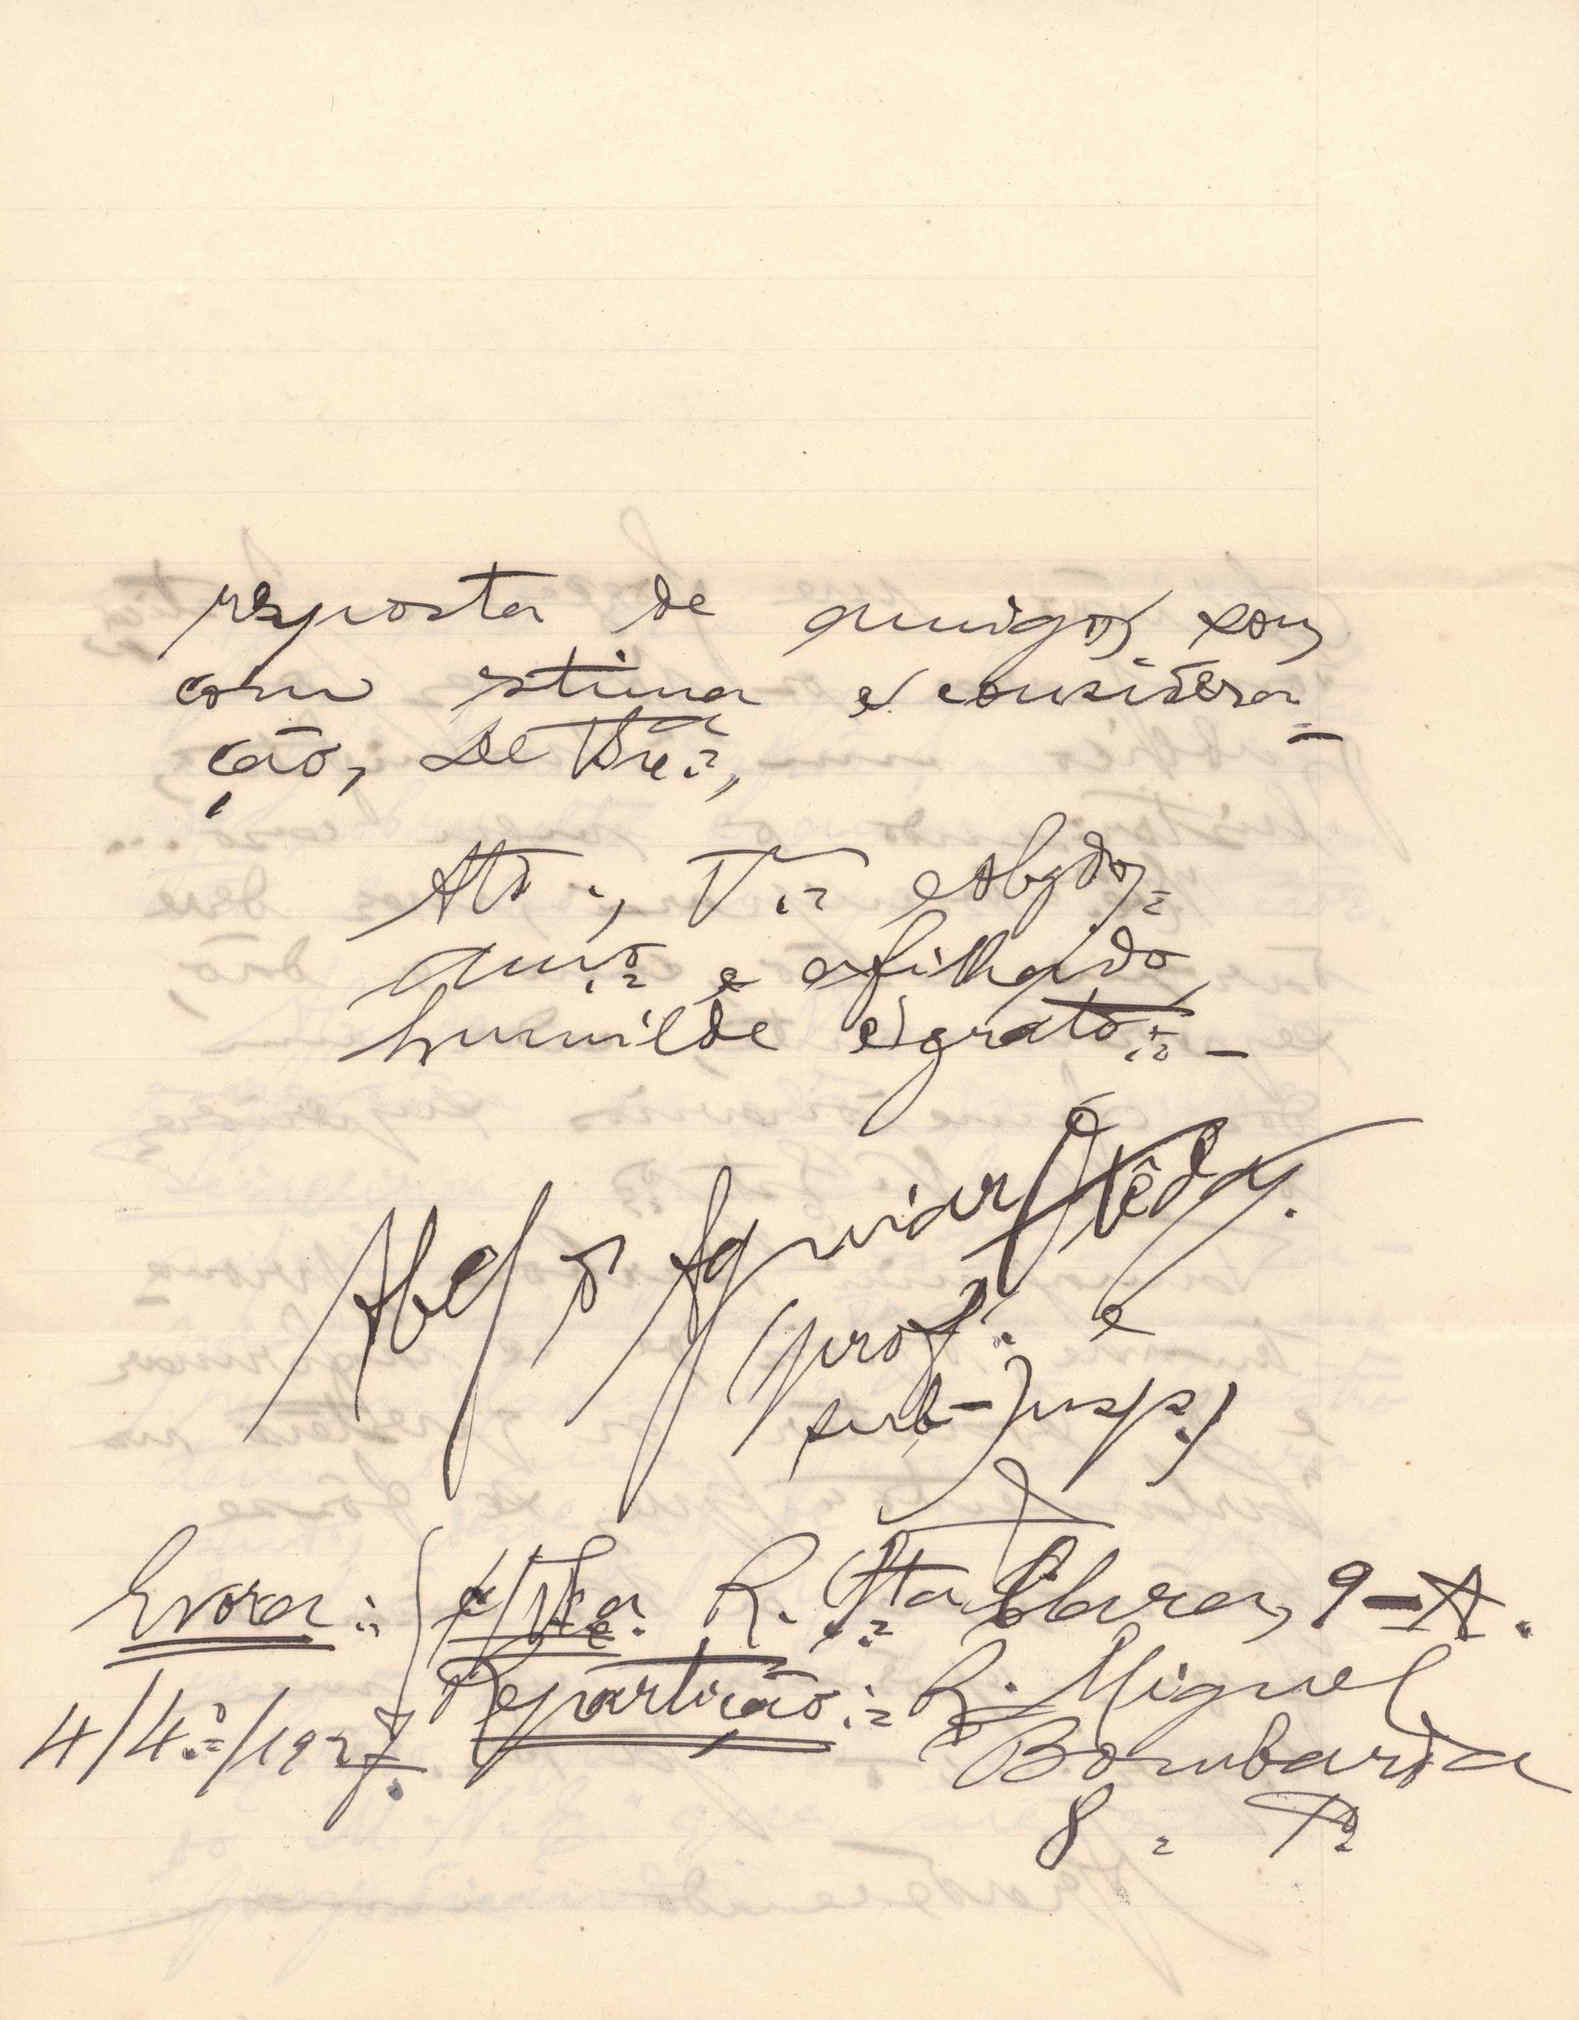 resposta de amigo, sou,
com estima e considera-
ção, de V. Ex.ª,
Att.º, V.ºr e obgdo,
am.º e afilhado
humilde e grato: -
Abel d'Aguiar
(prof. e
sub-insp.)
Evora: R. Sta. Clara, 9-A.
4/4.º/1927. Repartição: R. Miguel
Bombarda
8.